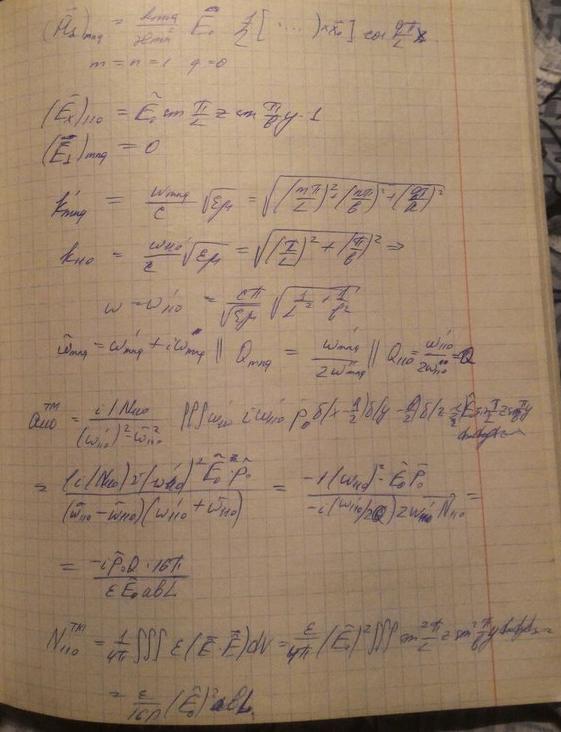 (H⊥)mnq = kmnq / æmn² E₀ 1/2 [ ····)×x₀] cos qπ/L x
m = n = 1 q = 0
(Ex)110 = E₀ sin π/L z sin π/b y · 1
(E⊥)mnq = 0
k'mnq = ωmnq/c √εμ = √((mπ/L)² + (nπ/b)² + (qπ/h)²)
k110 = ω110/c √εμ = √((π/L)² + (π/b)²) ⇒
ω = ω'110 = cπ/√εμ √(1/L² + 1/b²)
ω̃mnq = ω'mnq + iω''mnq || Qmnq = ω'mnq / 2ω''mnq || Q110 = ω'110 / 2ω''110 = Q
a110 TM = i/N110 / ((ω'110)² - ω̃110²) ∫∫∫ ω'110 iω'110 p₀ δ(x - a/2) δ(y - b/2) δ(z - L/2) E₀ sin π/L z sin π/b y
= (i/N110) i (ω'110)² E₀ · p₀ / (ω̃110 - ω̃110)(ω'110 + ω̃110) = -1(ω110)² · E₀ p₀ / -i(ω'110/2Q) 2ω'110 N110 =
= -i p₀ Q · 16π / ε E₀ abL
N110 TM = 1/4π ∫∫∫ ε(E · E) dV = ε/4π (E₀)² ∫∫∫ sin² π/L z sin² π/b y dxdydz =
= ε/16π (E₀)² abL.